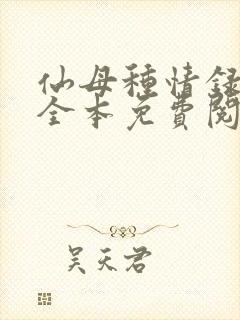 仙母種情録
全本免費閱
吴天君